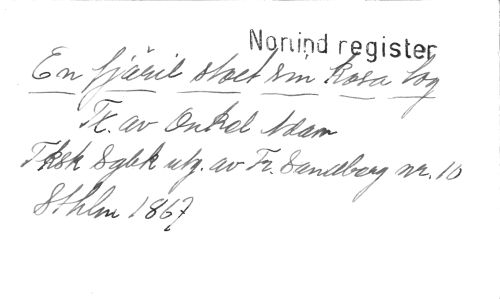 Nonind register
En fjäril stolt sin kosa tog
Tx. av Onkel Adam
Fksk Sgbk utg. av Fr. Sandberg nr. 10
Sthlm 1867